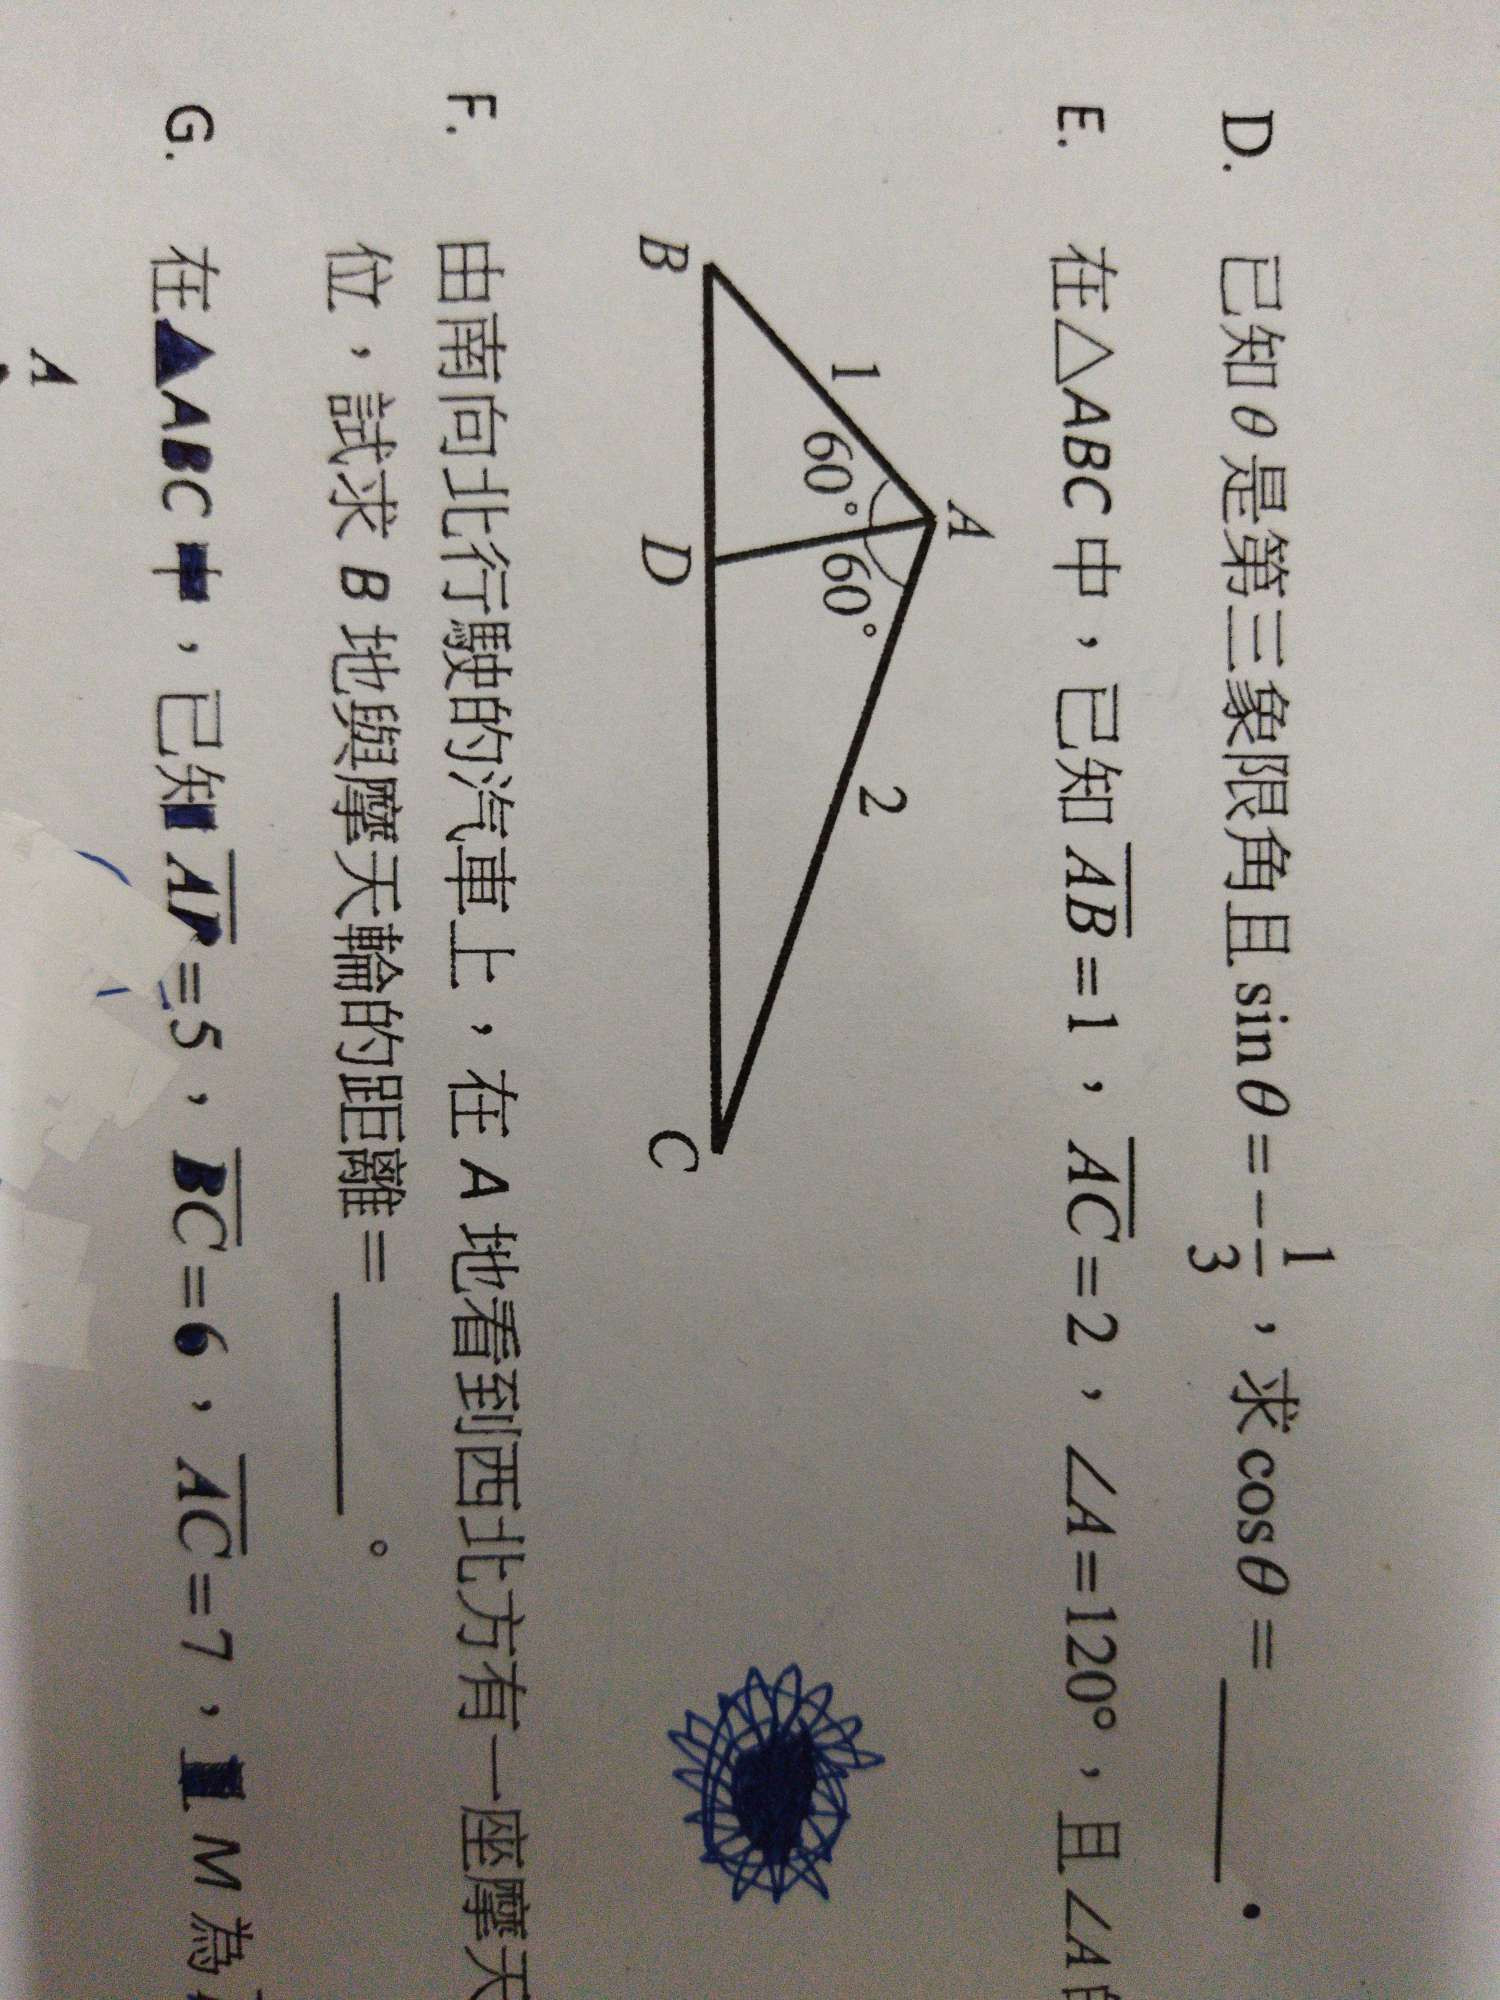 D. 已知θ是第三象限角且sinθ=-1/3，求cosθ=______.
E. 在△ABC中，已知AB=1，AC=2，∠A=120°，且∠A
A
1
60°
60°
2
B
D
C
F. 由南向北行駛的汽車上，在A地看到西北方有一座摩天
位，試求B地與摩天輪的距離=______。
G. 在▲ABC中，已知 =5，BC=6，AC=7， M為
A